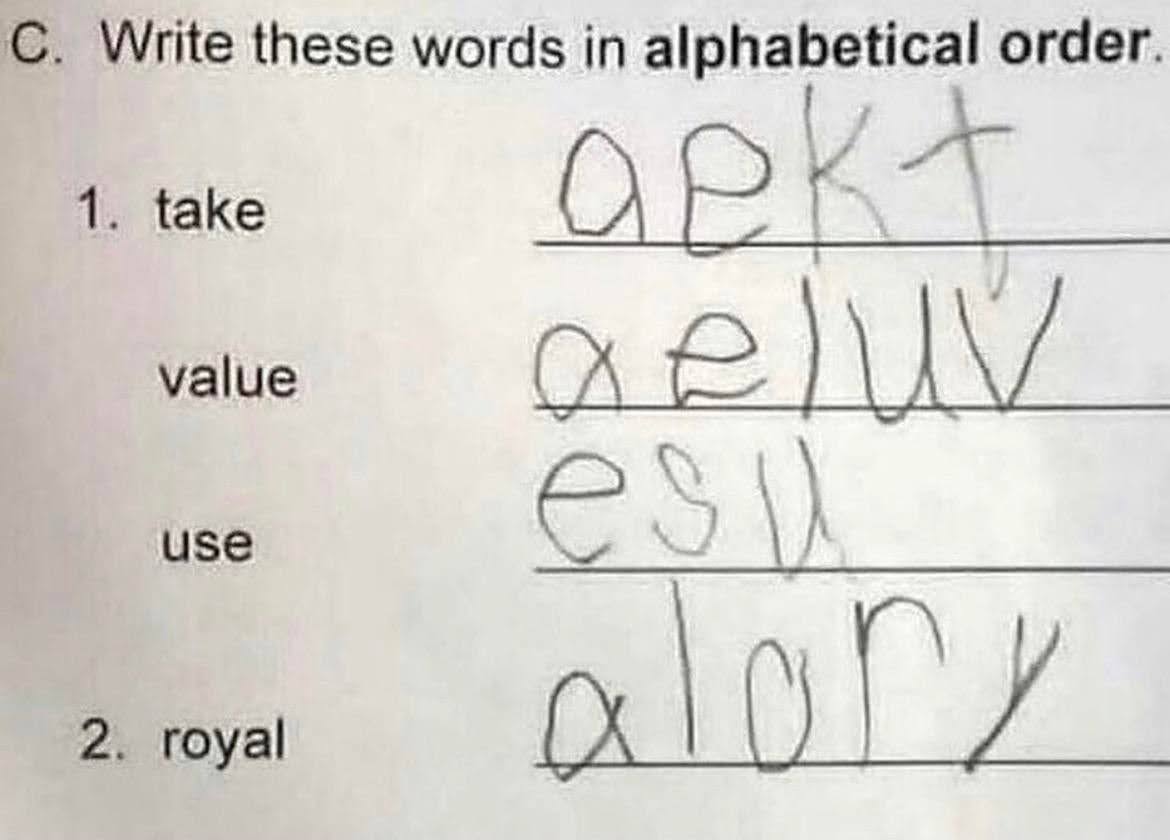 C. Write these words in alphabetical order.
1. take aekt
value aeluv
use esu
2. royal alory